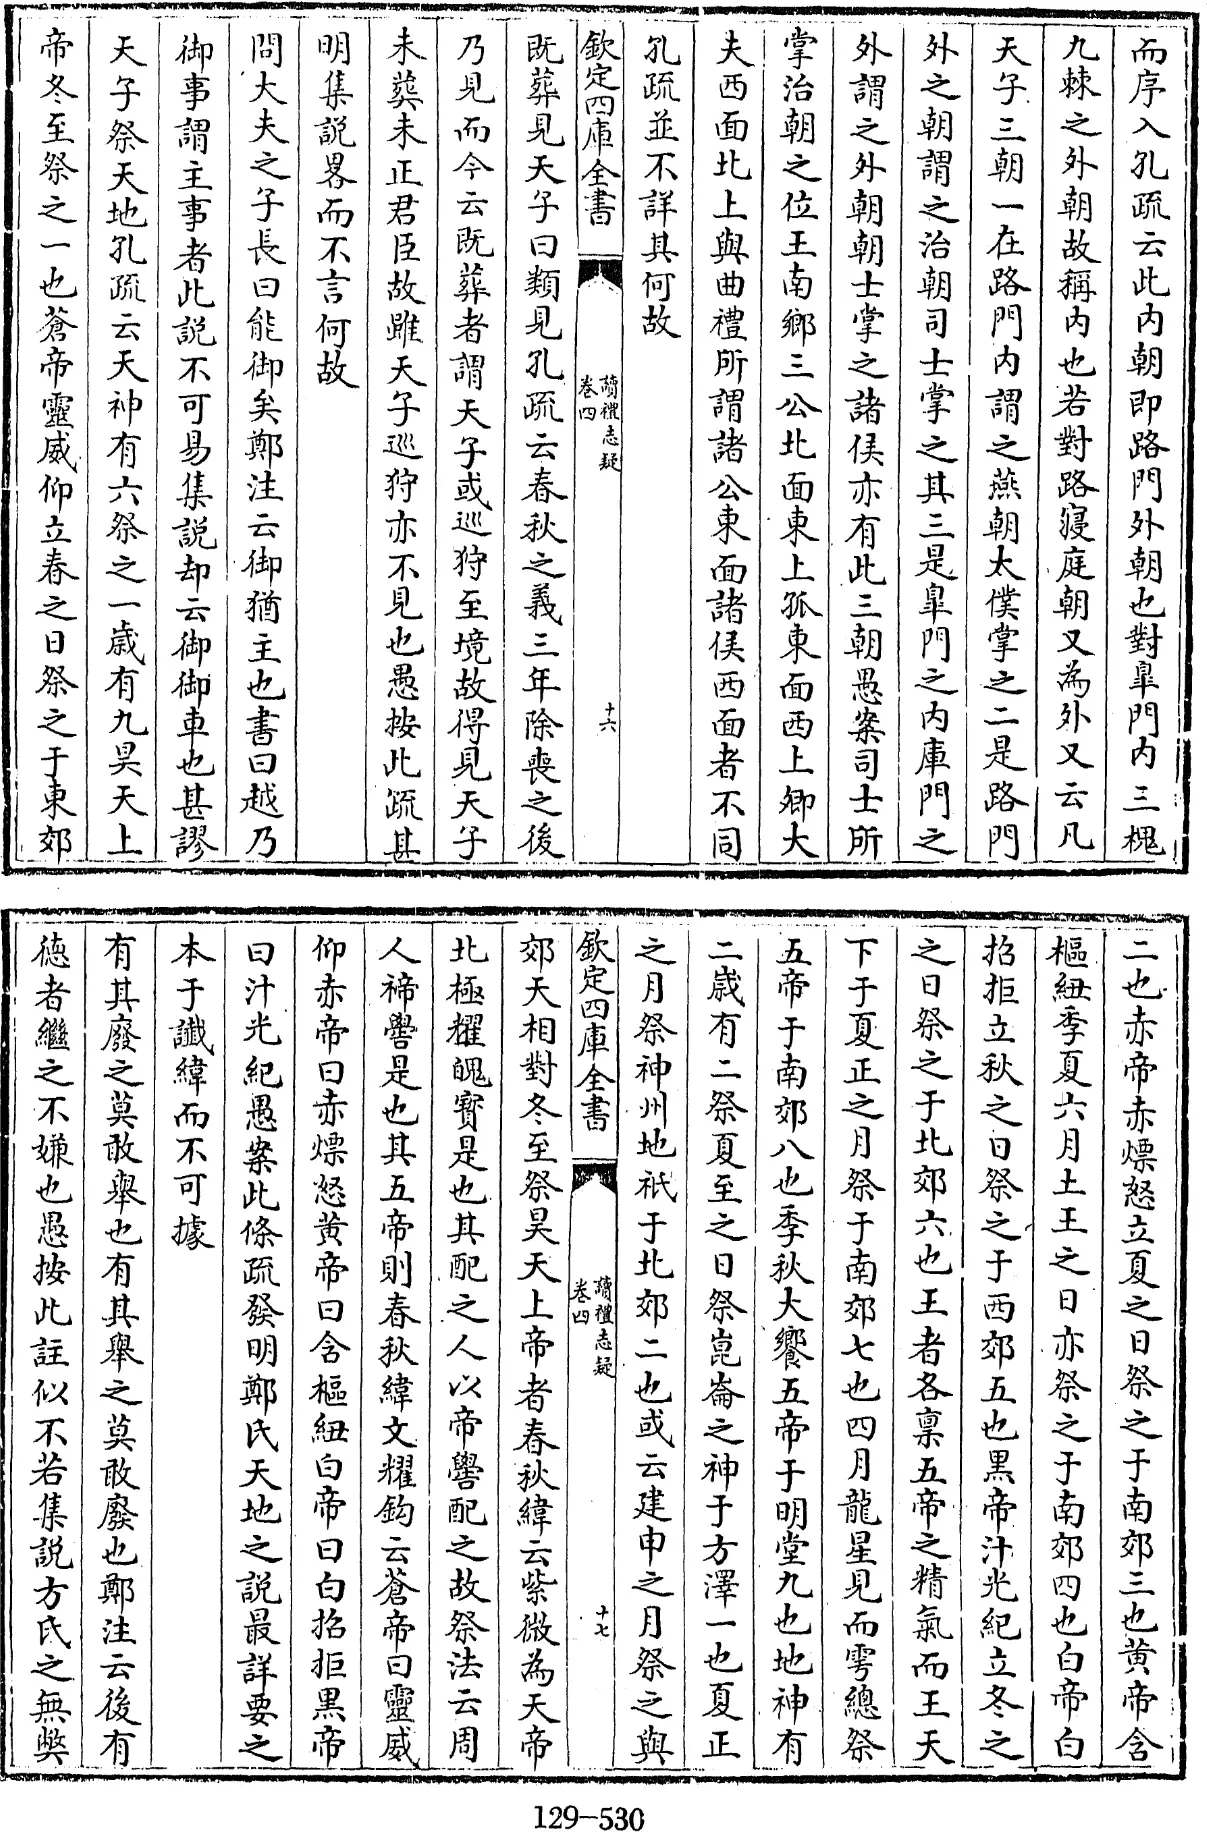 而序入孔疏云此内朝即路門外朝也對臯門内三槐
九棘之外朝故稱内也若對路寢庭朝又為外又云凡
天子三朝一在路門内謂之燕朝太僕掌之二是路門
外之朝謂之治朝司士掌之其三是臯門之内庫門之
外謂之外朝朝士掌之諸侯亦有此三朝愚案司士所
掌治朝之位王南鄉三公北面東上孤東面西上卿大
夫西面北上與曲禮所謂諸公東面諸侯西面者不同
孔疏並不詳其何故
欽定四庫全書
讀禮志疑
卷四
十六
既葬見天子曰類見孔疏云春秋之義三年除喪之後
乃見而今云既葬者謂天子或巡狩至境故得見天子
未葬未正君臣故雖天子巡狩亦不見也愚按此疏甚
明集説畧而不言何故
問大夫之子長曰能御矣鄭注云御猶主也書曰越乃
御事謂主事者此説不可易集説却云御御車也甚謬
天子祭天地孔疏云天神有六祭之一歲有九昊天上
帝冬至祭之一也蒼帝靈威仰立春之日祭之于東郊
二也赤帝赤熛怒立夏之日祭之于南郊三也黄帝含
樞紐季夏六月土王之日亦祭之于南郊四也白帝白
招拒立秋之日祭之于西郊五也黒帝汁光紀立冬之
之日祭之于北郊六也王者各稟五帝之精氣而王天
下于夏正之月祭于南郊七也四月龍星見而雩總祭
五帝于南郊八也季秋大饗五帝于明堂九也地神有
二歲有二祭夏至之日祭崑崙之神于方澤一也夏正
之月祭神州地祇于北郊二也或云建申之月祭之與
欽定四庫全書
讀禮志疑
卷四
十七
郊天相對冬至祭昊天上帝者春秋緯云紫微為天帝
北極耀魄寳是也其配之人以帝嚳配之故祭法云周
人禘嚳是也其五帝則春秋緯文耀鈎云蒼帝曰靈威
仰赤帝曰赤熛怒黄帝曰含樞紐白帝曰白招拒黒帝
曰汁光紀愚案此條疏發明鄭氏天地之説最詳要之
本于讖緯而不可據
有其廢之莫敢舉也有其舉之莫敢廢也鄭注云後有
德者繼之不嫌也愚按此註似不若集説方氏之無弊
129-530